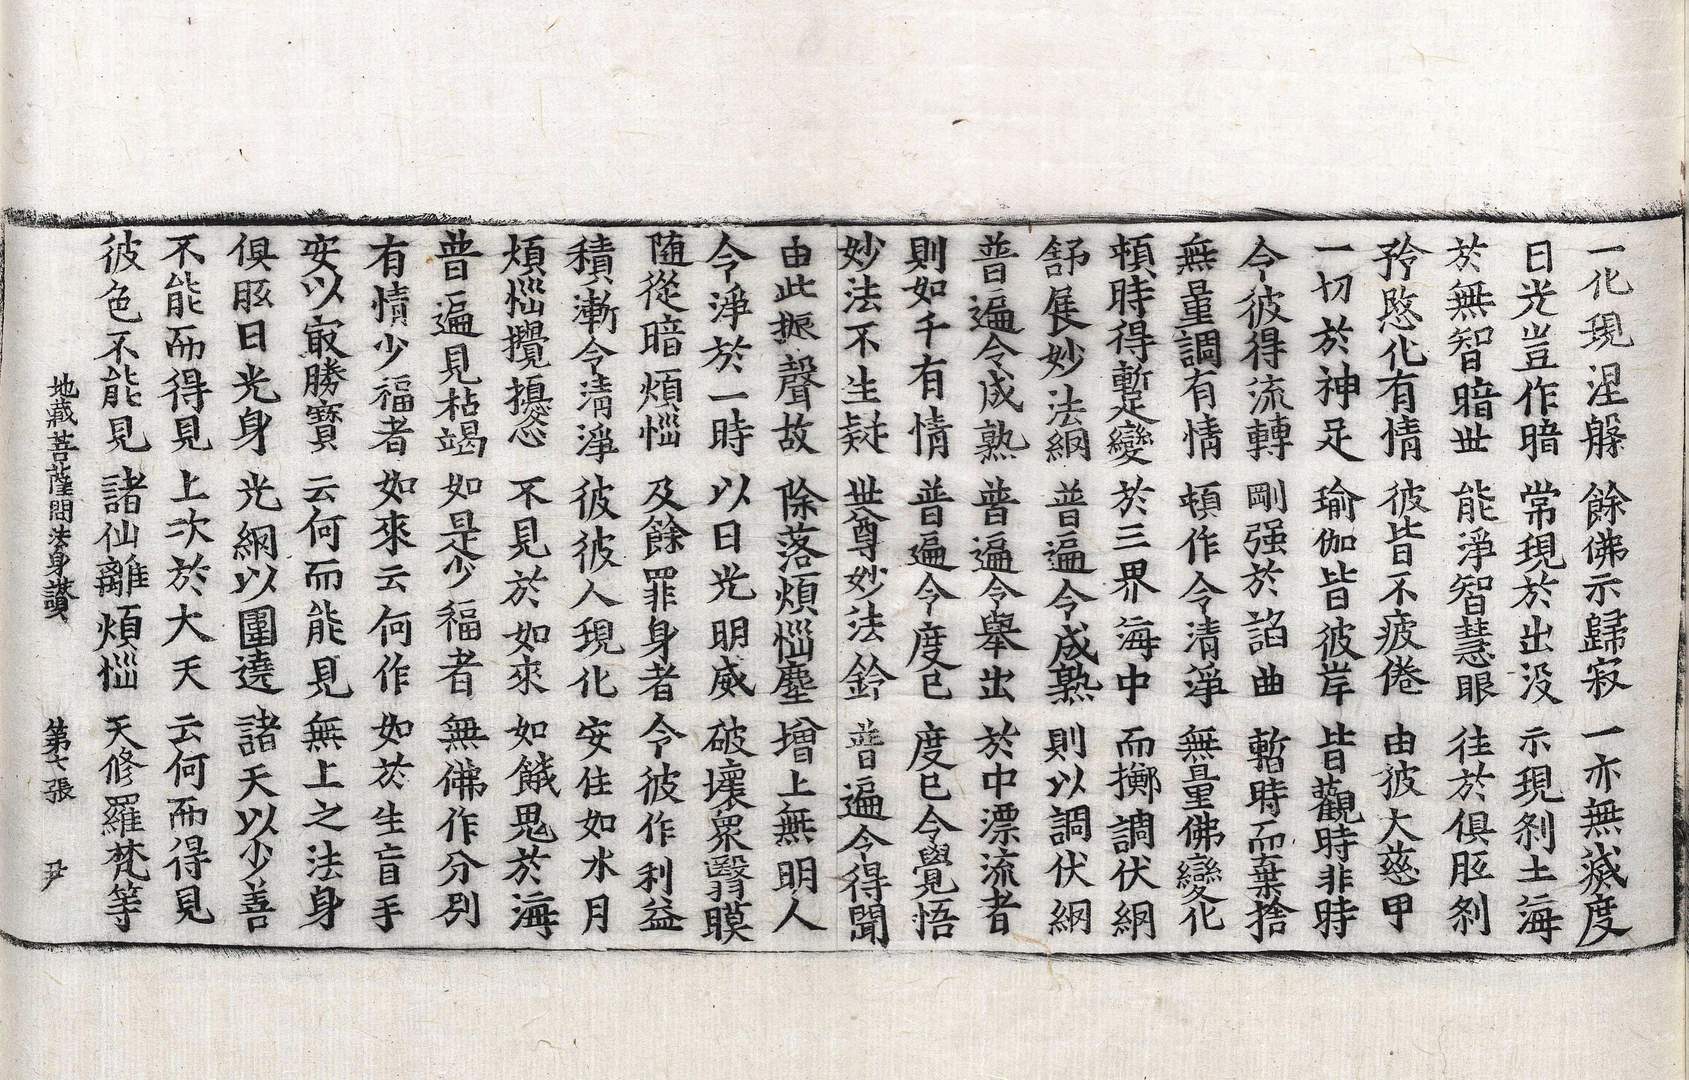 一化現涅槃 餘佛示歸寂 一亦無滅度
日光豈作暗 常現於出没 示現刹土海
於無智暗世 能淨智慧眼 往於俱胝刹
矜愍化有情 彼皆不疲倦 由彼大慈甲
一切於神足 瑜伽皆彼岸 皆觀時非時
令彼得流轉 剛强於諂曲 暫時而棄捨
無量調有情 頓作令清淨 無量佛變化
頓時得暫變 於三界海中 而擲調伏網
舒展妙法網 普遍令成熟 則以調伏網
普遍令成熟 普遍令舉出 於中漂流者
則如千有情 普遍令度已 度已令覺悟
妙法不生疑 世尊妙法鈴 普遍令得聞
由此振聲故 除落煩惱塵 增上無明人
令淨於一時 以日光明威 破壞衆翳瞙
随從暗煩惱 及餘罪身者 令彼作利益
積漸令淸淨 彼彼人現化 安住如水月
煩惱攪擾惌 不見於如來 如餓鬼於海
普遍見枯竭 如是少福者 無佛作分别
有情少福者 如來云何作 如於生盲手
安以㝡勝寶 云何而能見 無上之法身
俱胝日光身 光網以圍遶 諸天以少善
不能而得見 上次於大天 云何而得見
彼色不能見 諸仙離煩惱 天修羅梵等
地藏菩薩問法身讚 第七張 尹